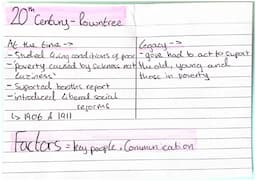 20th Century - Rowntree
At the time ->
- Studied living conditions of poor
- Poverty caused by sickness not laziness
- Suported booths report
- introduced Liberal social reforms
↳ 1906 & 1911
Legacy -->
- gove had to act to suport the old, young and those in poverty
Factors = key people, Communication